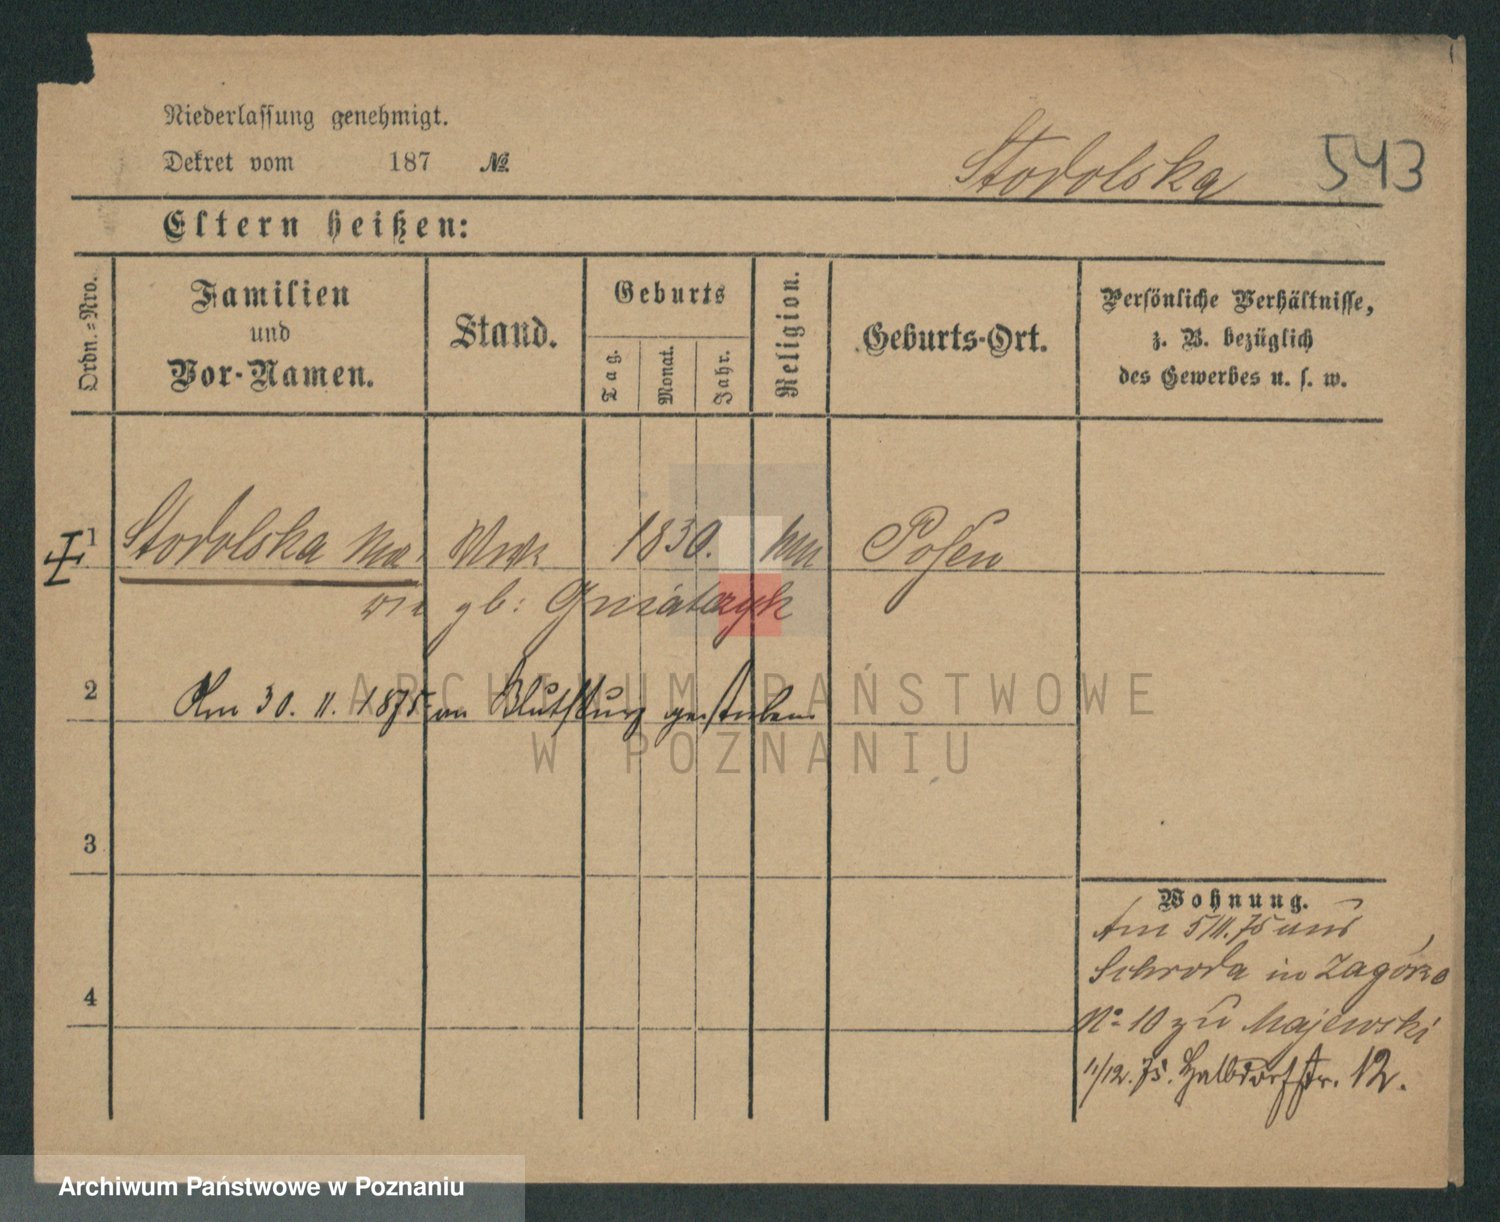 Niederlassung genehmigt.
Dekret vom 187 №
Stodolska 543
Eltern heißen:
Ordn.-Nro.
Familien
und
Vor-Namen.
Stand.
Geburts
Tag.
Monat.
Jahr.
Religion.
Geburts-Ort.
Persönliche Verhältnisse,
z. B. bezüglich
des Gewerbes u. s. w.
1 Stodolska 1830. Posen
gb: Gniatczyk
2 Am 30. 11. 1875 an Blutsturz gestorben
3
4
Wohnung.
Am 5/11. 75 aus
Schroda in Zagórze
No 10 zu Majewski
11/12. 75. Halbdorfstr. 12.
ARCHIWUM PAŃSTWOWE
W POZNANIU
Archiwum Państwowe w Poznaniu